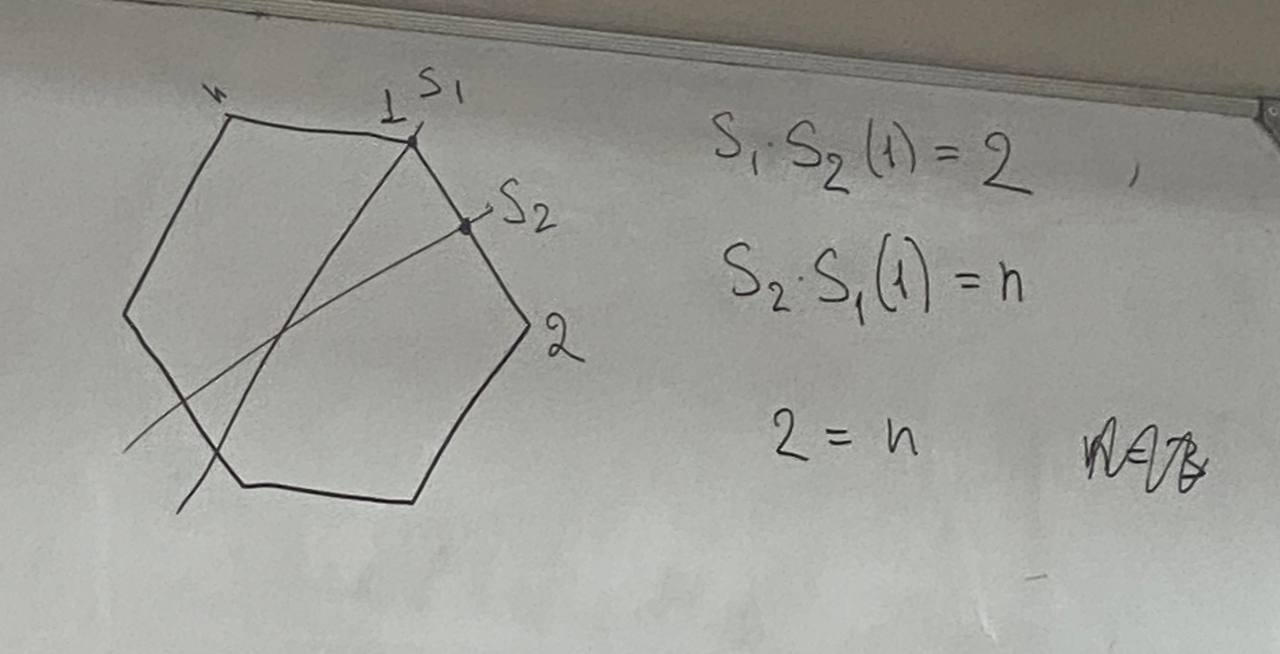 n
1 S₁
S₂
2
S₁·S₂(1) = 2 ,
S₂·S₁(1) = n
2 = n